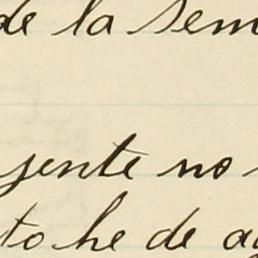 de la sem
gente no
to he de a